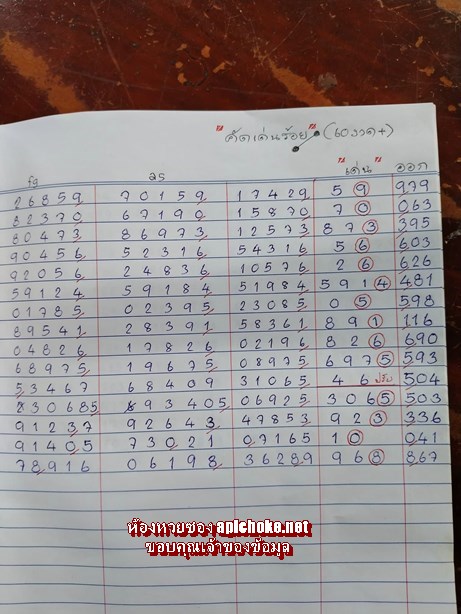 "คัดเด่นร้อย" (60งวด+)
"เด่น" ออก
26859 70159 17429 59 979
82370 67190 15870 70 063
80473 86973 12573 873 395
90456 52316 54316 56 603
92056 24836 10576 26 626
59124 59184 51984 5914 481
01785 02395 23085 05 598
89541 28391 58361 891 116
04826 17826 02196 826 690
68975 19675 08975 6975 593
53467 68409 31065 46 ปรับ 504
230685 693405 06925 3065 503
91237 92643 47853 923 336
91405 73021 07165 10 041
78916 06198 36289 968 867
ห้องหวยซอง apichoke.net
ขอบคุณเจ้าของข้อมูล